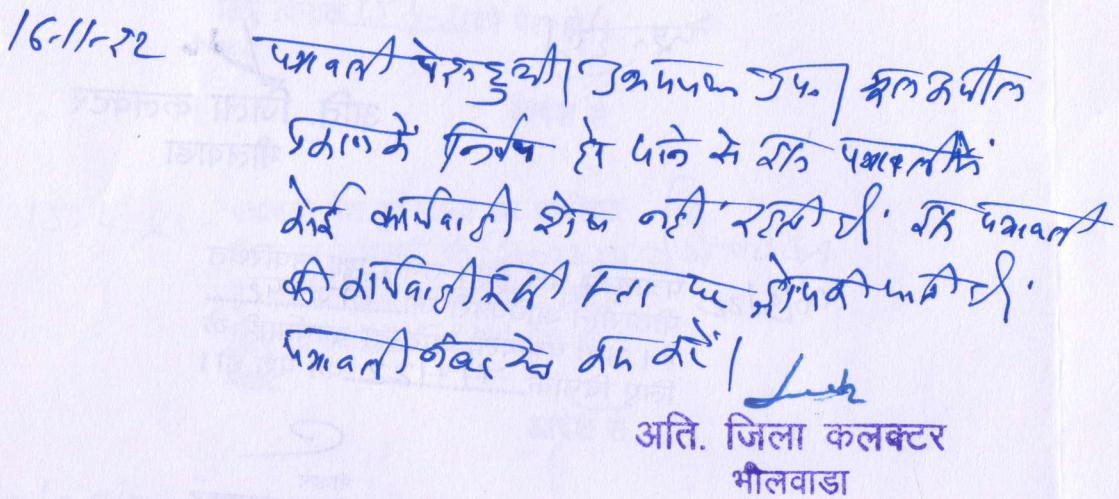 16-11-22 पत्रावली पेश हुयी। उभयपक्ष उप.। मूल अपील
प्रकरण में निर्णय हो जाने से इस पत्रावली में
कोई कार्यवाही शेष नहीं रहती है। इस पत्रावली
की कार्यवाही इसी स्तर पर ड्रॉप की जाती है।
पत्रावली नंबर से कम करें।
अति. जिला कलक्टर
भीलवाडा